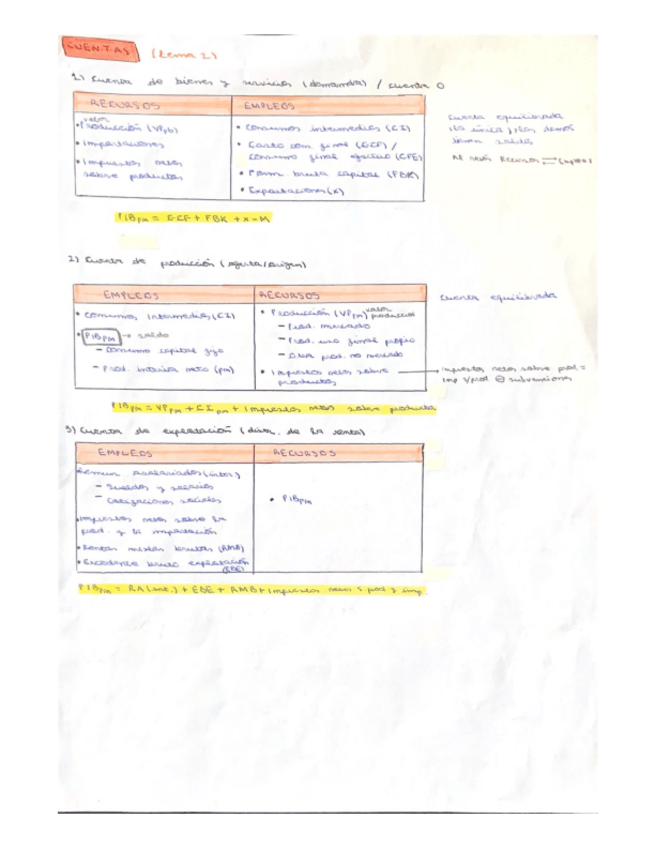 CUENTAS (tema 2)
1) Cuenta de bienes y servicios (demanda) / cuenta 0
RECURSOS
• Producción (VPpb)
valor
• Importaciones
• Impuestos netos
sobre productos
EMPLEOS
• Consumos intermedios (CI)
• Gasto con. final (GCF) /
consumo final efectivo (CFE)
• Form bruta capital (FBK)
• Exportaciones (x)
cuenta equilibrada
(la única), las demás
tienen saldos
PIBpm = GCF + FBK + x - M
2) Cuenta de producción (oferta/origen)
EMPLEOS
• Consumos Intermedios (CI)
• PIBpm → saldo
- Consumo capital fijo
- Prod. interior neto (pm)
RECURSOS
• Producción (VPpm) valor producción
- Prod. mercado
- Prod. uso final propio
- Otra prod. no mercado
• Impuestos netos sobre
productos
cuenta equilibrada
Impuestos netos sobre prod =
imp s/prod ⊖ subvenciones
PIBpm = VPpm + CIpm + Impuestos netos sobre producto
3) Cuenta de explotación (distr. de la renta)
EMPLEOS
Remun asalariados (inter.)
- Sueldos y salarios
- Cotizaciones sociales
• Impuestos netos sobre la
prod. y la importación
• Rentas mixtas brutas (RMB)
• Excedente bruto explotación
(EBE)
RECURSOS
• PIBpm
PIBpm = RA (int.) + EBE + RMB + Impuestos netos s prod y imp.